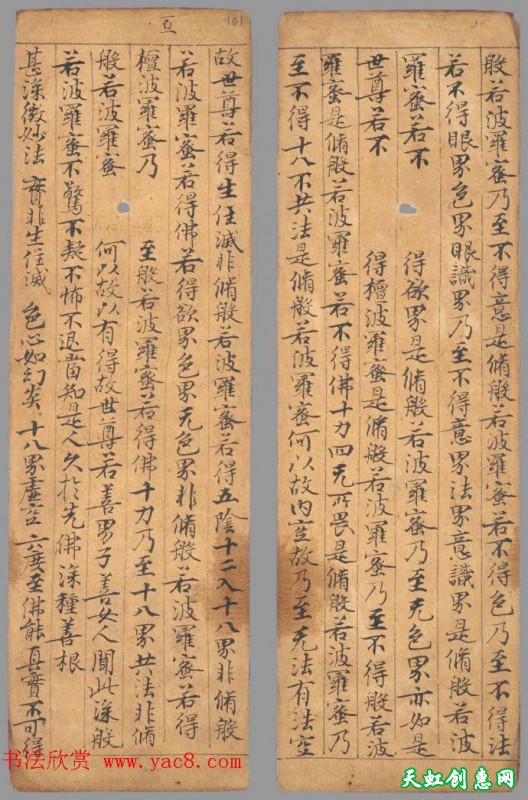 般若波羅蜜乃至不得意是脩般若波羅蜜若不得色乃至不得法
若不得眼界色界眼識界乃至不得意界法界意識界是脩般若波
羅蜜若不 得欲界是脩般若波羅蜜乃至无色界亦如是
世尊若不 得檀波羅蜜是脩般若波羅蜜乃至不得般若波
羅蜜是脩般若波羅蜜若不得佛十力四无所畏是脩般若波羅蜜乃
至不得十八不共法是脩般若波羅蜜何以故内空故乃至无法有法空
故世尊若得生住滅非脩般若波羅蜜若得五陰十二入十八界非脩般
若波羅蜜若得佛若得欲界色界无色界非脩般若波羅蜜若得
檀波羅蜜乃 至般若波羅蜜若得佛十力乃至十八界共法非脩
般若波羅蜜 何以故以有得故世尊若善男子善女人聞此深般
若波羅蜜不驚不疑不怖不退當知是人久於先佛深種善根
甚深微妙法 實非生住滅 色心如幻炎 十八界虛空 六度至佛能 真實不可得
书法欣赏 www.yac8.com
天虹创意网